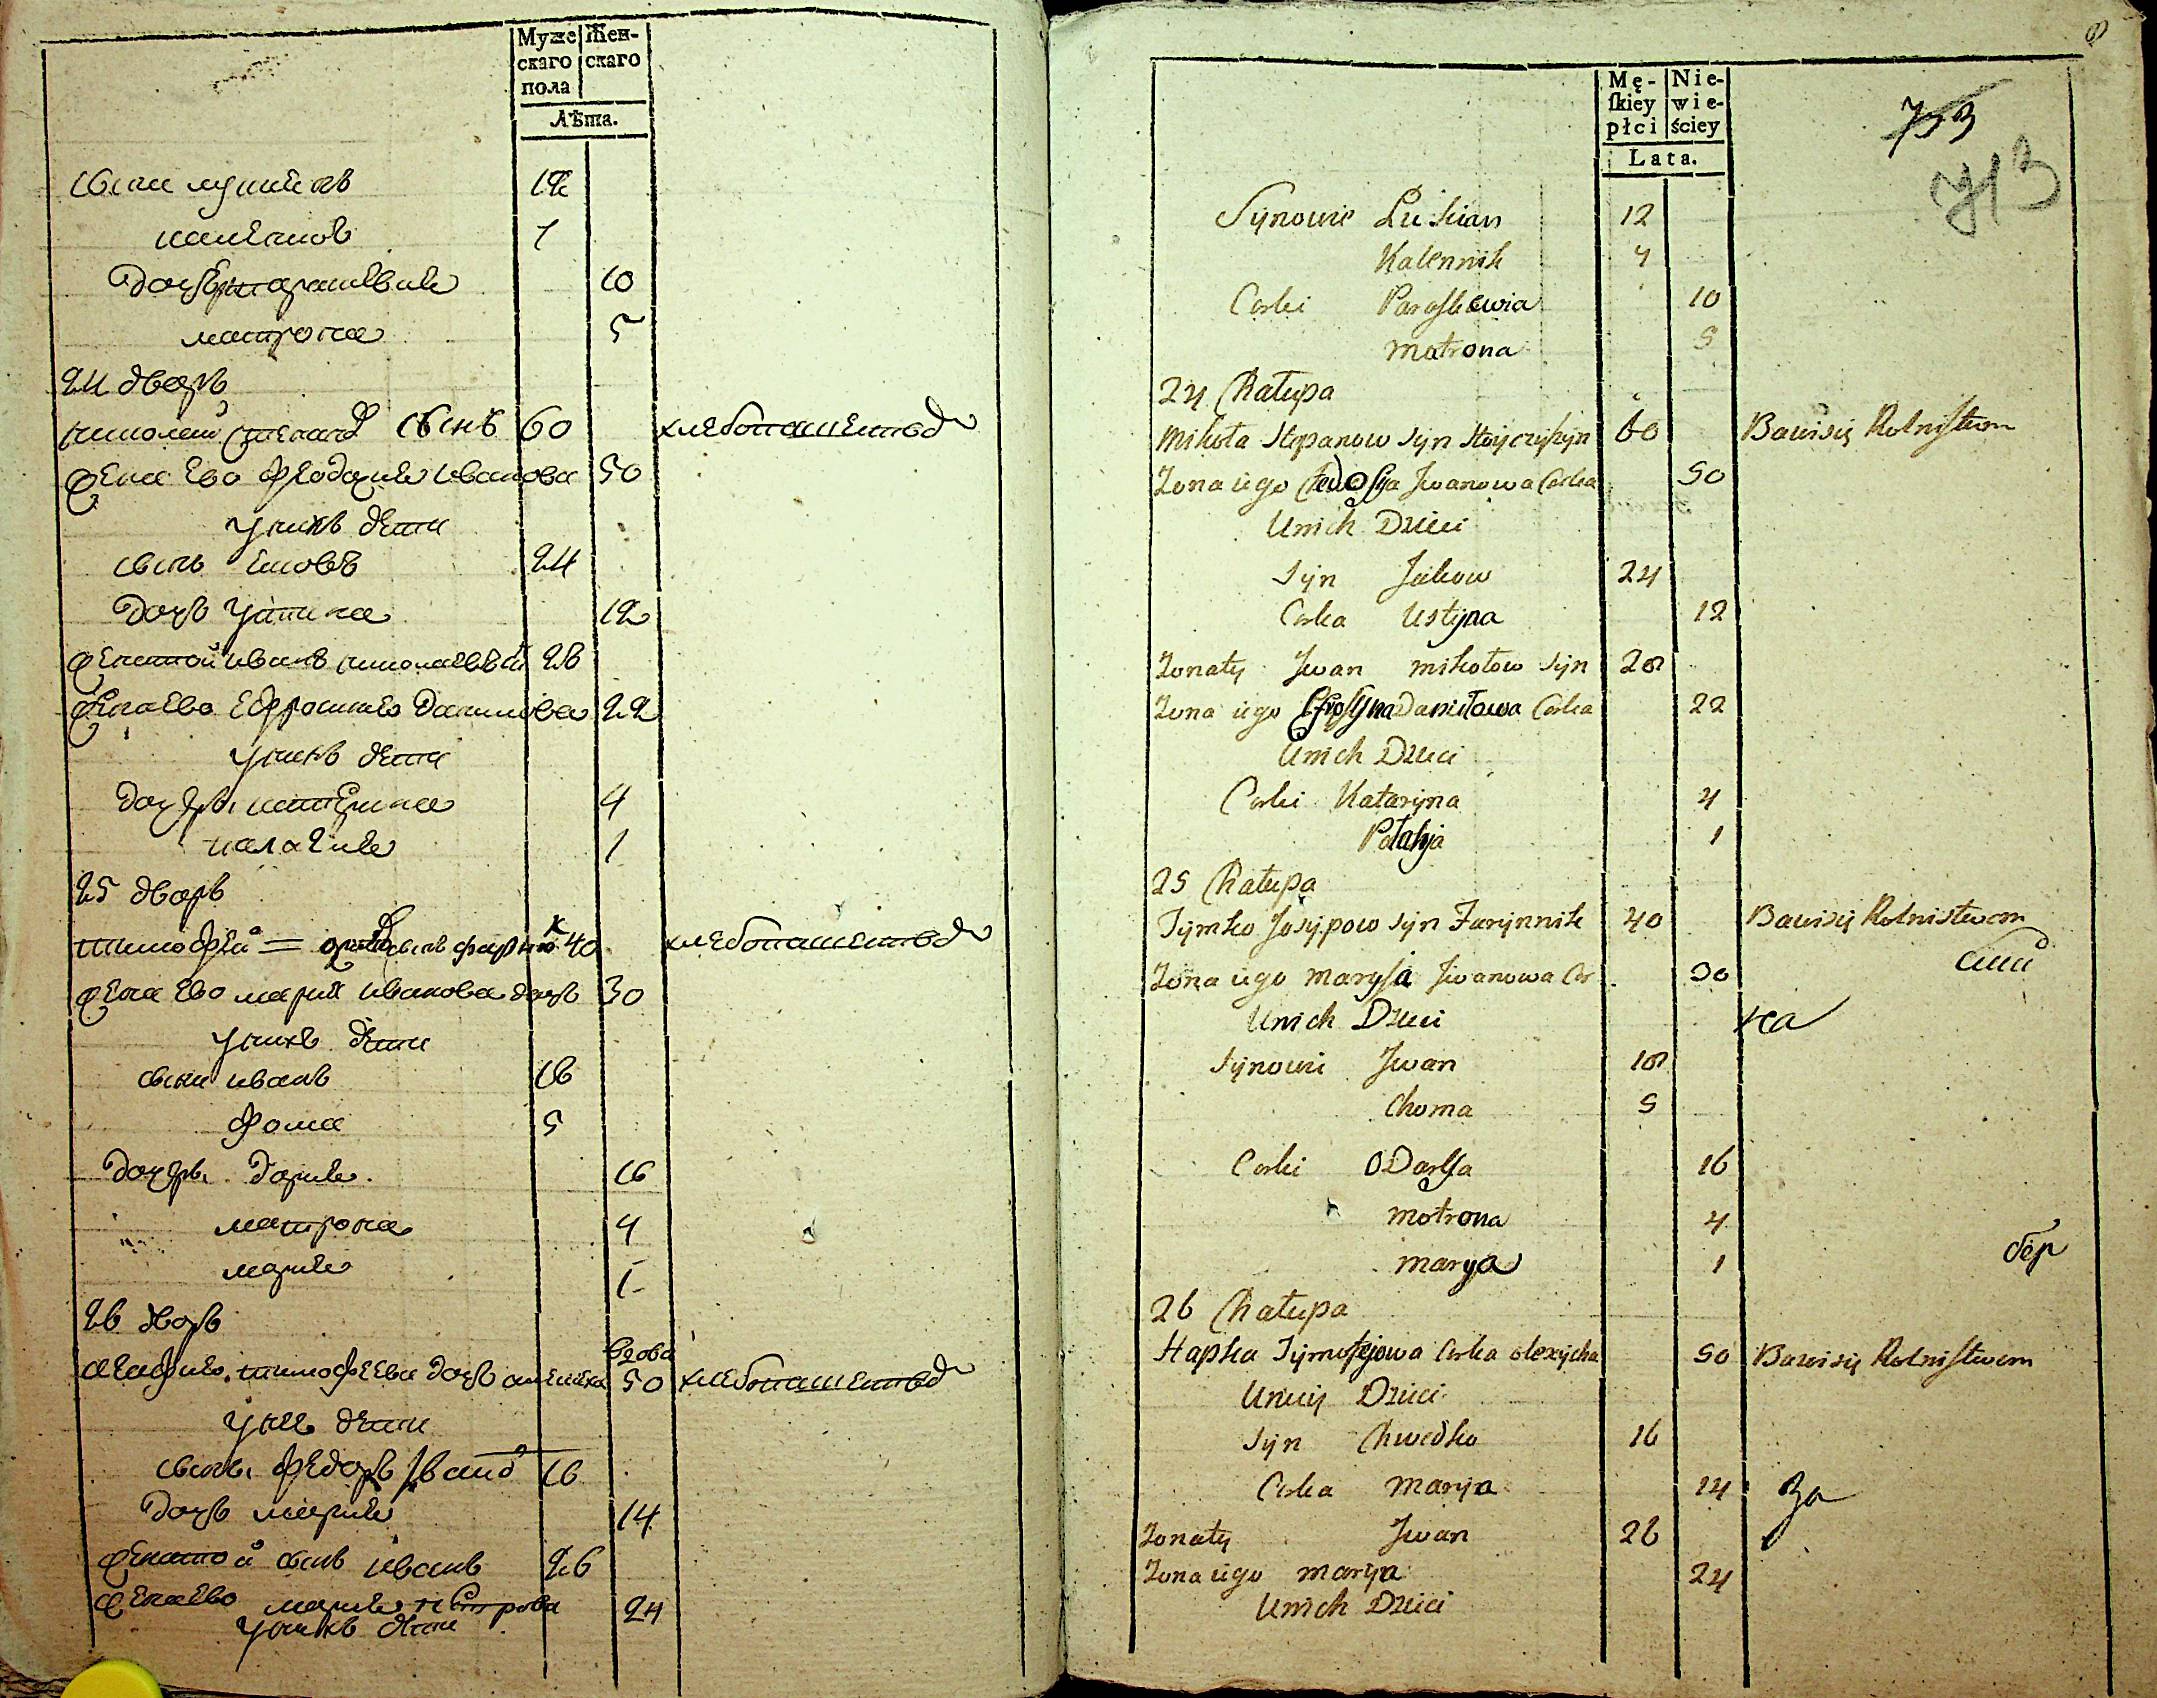 Муже Жен-
скаго скаго
пола
Лѣта.
сыни лукиянъ 12
калѣников 7
дочери парасковия 10
матрона 5
24 дворъ
николай степано сынъ 60 хлебопашеством
жена ево феодосия иванова 50
у нихъ дети
сынъ яковъ 24
дочь устина 12
женатой иванъ николаевъ 28
жена ево ефросиния данилова 22
у нихъ дети
дочери катерина 4
палагия 1
25 дворъ
тимофей = сынъ 40 хлебопашеством
жена ево мария иванова дочь 30
у нихъ дети
сыни иванъ 18
фома 5
дочери дария 16
матрона 4
мария 1
26 дворъ
вдова
агафия тимофеева дочь 50 хлебопашеством
у нее дети
сынъ федоръ 16
дочь мария 14
женатой сынъ иванъ 26
жена ево мария 24
у нихъ дети
Mę- Nie-
ſkiey wie-
płci ściey
Lata.
753
713
Synowie Lukian 12
Kalennik 7
Corki Paraskewia 10
Motrona 5
24 Chałupa
Mikoła Stepanow syn 60 Bawi się Rolnistwem
Zona iego Fedosya Jwanowa Corka 50
U nich Dzieci
Syn Jakow 24
Corka Ustyna 12
Zonaty Jwan Mikołow syn 28
Zona iego Efrosyna Daniłowa Corka 22
U nich Dzieci
Corki Kataryna 4
Połahja 1
25 Chałupa
Tymko Josypow syn Farynnik 40 Bawi się Rolnistwem
Zona iego Marysia Jwanowa Cor 30
U nich Dzieci на
Synowie Jwan 18
Choma 5
Corki ODarja 16
Motrona 4
Marya 1
бер
26 Chałupa
Hapka Tymofejowa Corka Olexycha 50 Bawi się Rolnistwem
U niey Dzieci
Syn Chwedko 16
Corka Marya 14 За
Zonaty Jwan 26
Zona iego Marya 24
U nich Dzieci